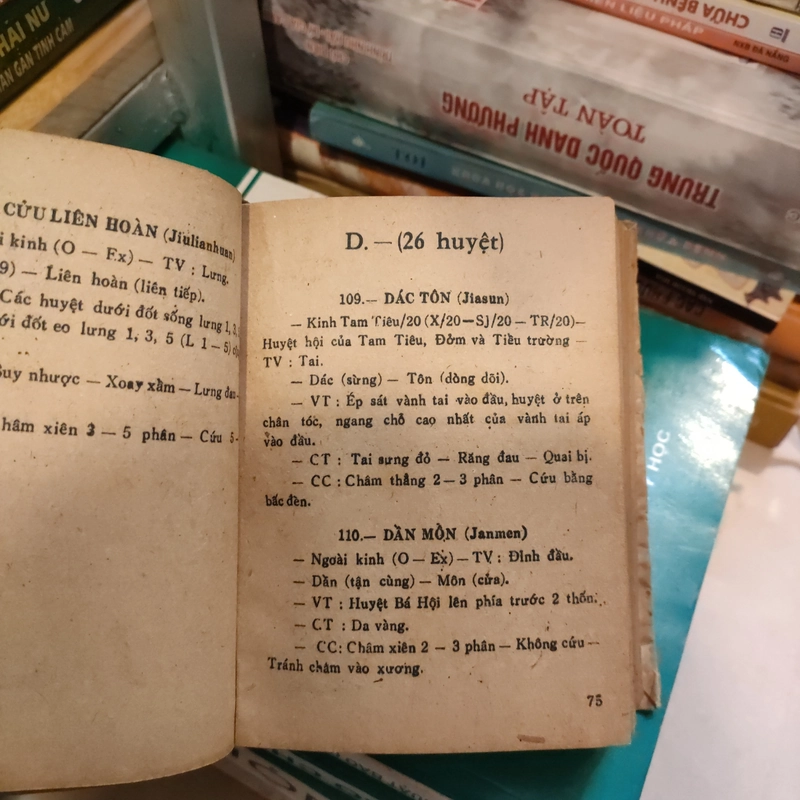 CỬU LIÊN HOÀN (Jiulianhuan)
kinh (O — Ex) — TV : Lưng.
— Liên hoàn (liên tiếp).
Các huyệt dưới đốt sống lưng 1, 3,
đốt eo lưng 1, 3, 5 (L 1 — 5)
Suy nhược — Xoay xầm — Lưng đau
châm xiên 3 — 5 phân — Cứu 5-
D. — (26 huyệt)
109.— DÁC TÔN (Jiasun)
— Kinh Tam Tiêu/20 (X/20—SJ/20 — TR/20)—
Huyệt hội của Tam Tiêu, Đởm và Tiểu trường —
TV : Tai.
— Dác (sừng) — Tôn (dòng dõi).
— VT : Ép sát vành tai vào đầu, huyệt ở trên
chân tóc, ngang chỗ cao nhất của vành tai áp
vào đầu.
— CT : Tai sưng đỏ — Răng đau — Quai bị.
— CC : Châm thẳng 2 — 3 phân — Cứu bằng
bấc đèn.
110.— DẦN MÔN (Janmen)
— Ngoài kinh (O — Ex) — TV : Đỉnh đầu.
— Dần (tận cùng) — Môn (cửa).
— VT : Huyệt Bá Hội lên phía trước 2 thốn.
— CT : Da vàng.
— CC: Châm xiên 2 — 3 phân — Không cứu —
Tránh châm vào xương.
75
TRUNG QUỐC DANH PHƯƠNG
TOÀN TẬP
CHỮA BỆNH
LIỆU PHÁP
HỌC